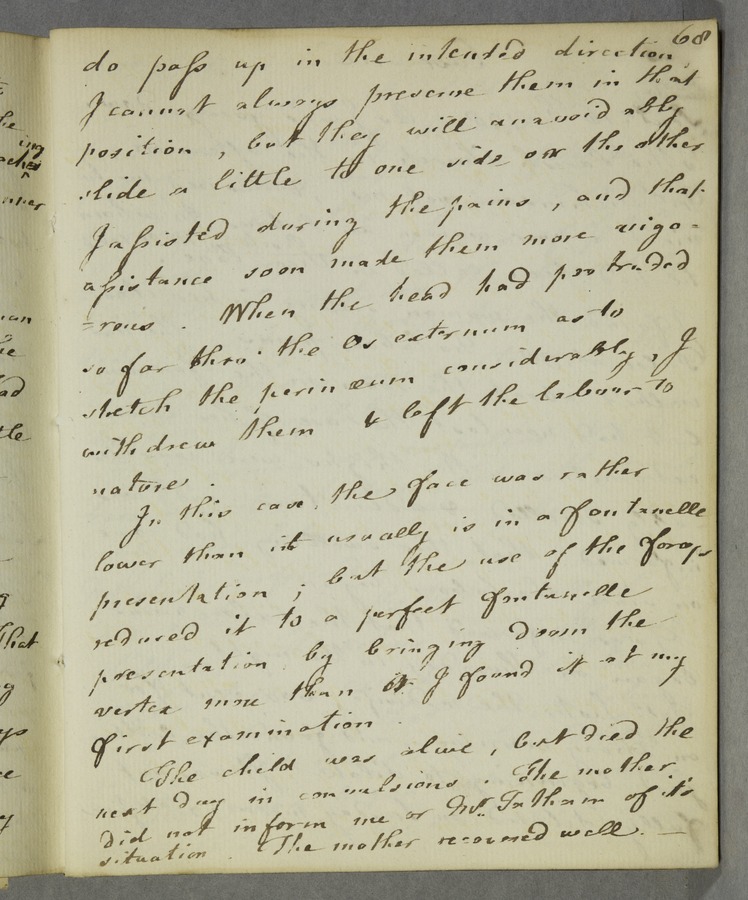 68
do paſs up in the intended direction
I cannot always preserve them in that
position, but they will unavoidably
slide a little to one side or the other
I aſsisted during the pains, and that
aſsistance soon made them more vigo=
=rous. When the head had protruded
so far thro' the Os externum as to
stretch the perinæum considerably, I
withdrew them & left the labour to
nature.
In this case, the face was rather
lower than it usually is in a fontanelle
presentation; but the use of the forceps
reduced it to a perfect fontanelle
presentation by bringing down the
vertex more than I found it at my
first examination.
The child was alive, but died the
next day in convulsions. The mother
did not inform me or Mr. Tatham of it's
situation. The mother recovered well. —
ing
ad
That